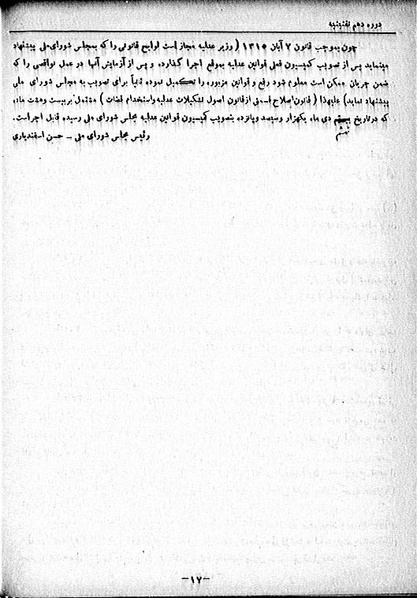 دوره دهم تقنینیه
چون بموجب قانون ۲ آبان ۱۳۱۵ ( وزیر عدلیه مجاز است لوایح قانونی را که بمجلس شورای ملی پیشنهاد
مینماید پس از تصویب کمیسیون فعلی قوانین عدلیه بموقع اجرا گذارده و پس از آزمایش آنها در عمل نواقصی را که
ضمن جریان ممکن است معلوم شود رفع و قوانین مزبوره را تکمیل نموده ثانیاً برای تصویب به مجلس شورای ملی
پیشنهاد نماید) علیهذا ( قانون اصلاح قسمتی از قانون اصول تشکیلات عدلیه و استخدام قضات ) مشتمل بر بیست و هشت ماده
که در تاریخ ششم دی ماه یکهزار و سیصد و پانزده بتصویب کمیسیون قوانین عدلیه مجلس شورای ملی رسیده قابل اجرا است.
رئیس مجلس شورای ملی - حسن اسفندیاری
-۱۷-